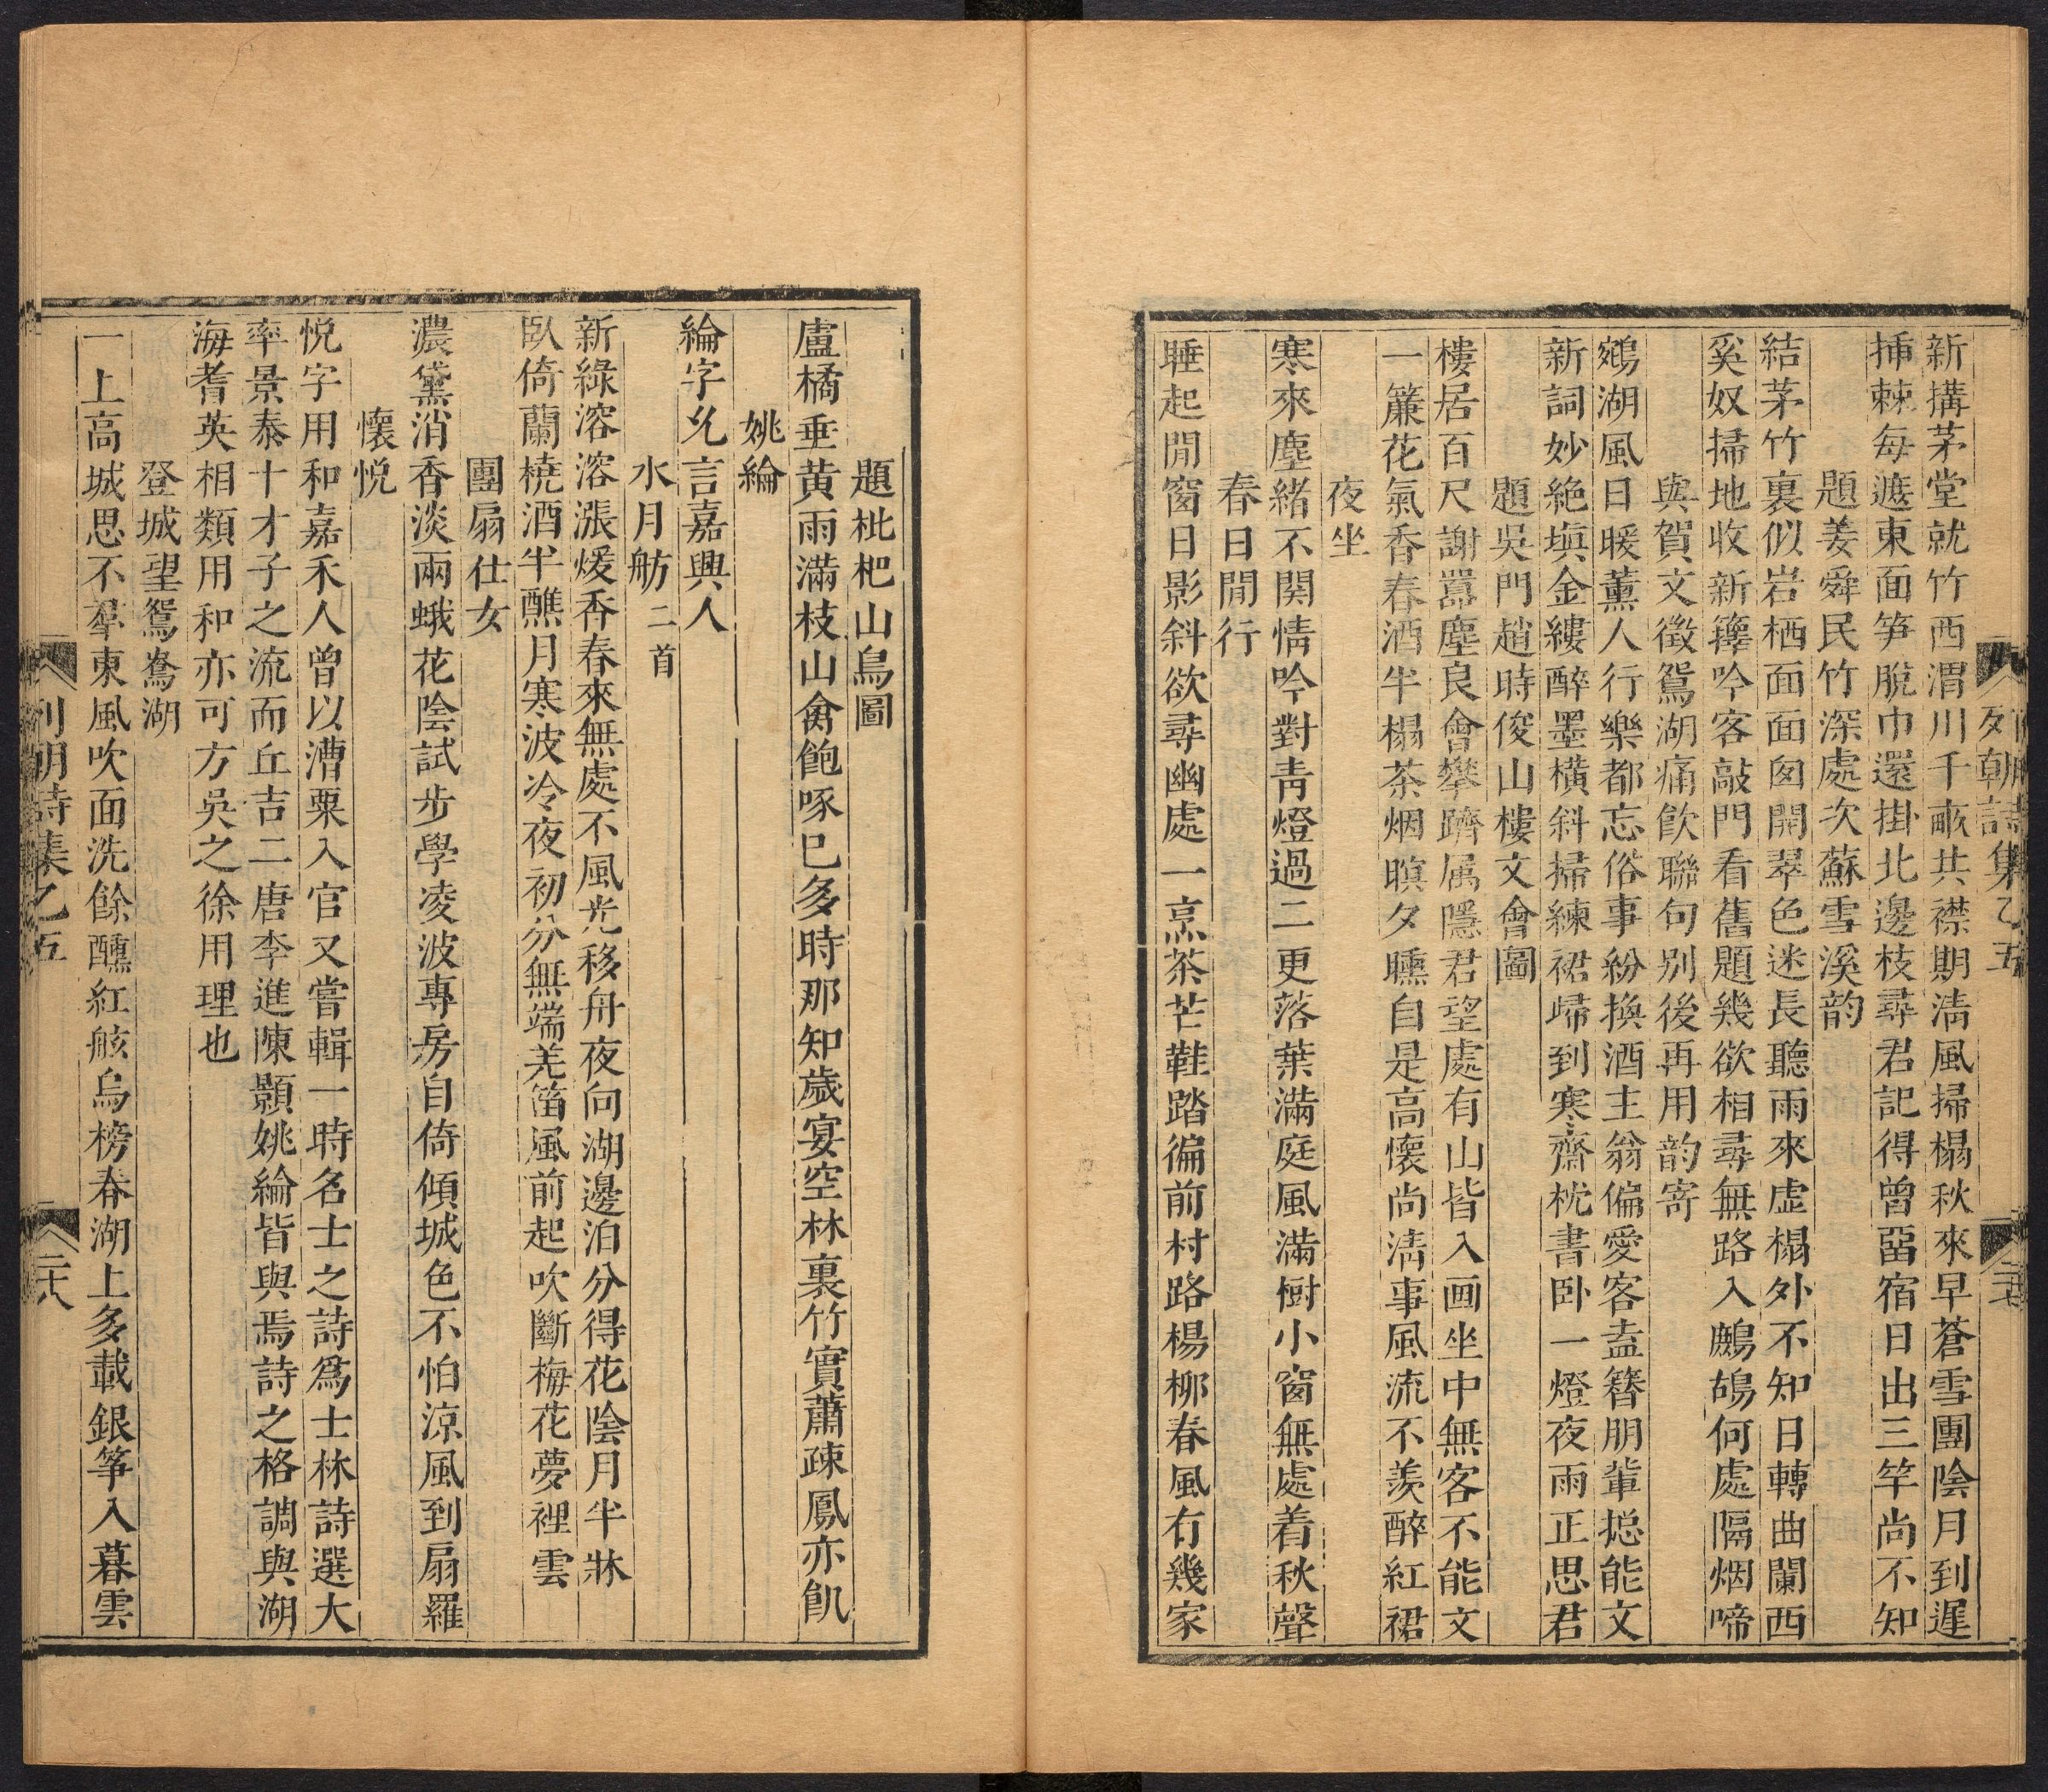 新搆茅堂就竹西渭川千畝共襟期淸風掃榻秋來早蒼雪團陰月到遲
揷棘每遮東面笋脫巾還掛北邊枝尋君記得曾畱宿日出三竿尚不知
題姜舜民竹深處次蘇雪溪韵
結茅竹裏似岩栖面面囪開翠色迷長聽雨來虛榻外不知日轉曲闌西
奚奴掃地收新籜吟客敲門看舊題幾欲相尋無路入鷓鴣何處隔烟啼
與賀文徵鴛湖痛飮聯句别後再用韵寄
鵷湖風日暖薰人行樂都忘俗事紛換酒主翁偏愛客盍簪朋輩捴能文
新詞妙絶塡金縷醉墨橫斜掃練裙歸到寒齋枕書卧一燈夜雨正思君
題吳門趙時俊山樓文會圖
樓居百尺謝囂塵良會攀躋属隱君望處有山皆入画坐中無客不能文
一簾花氣香春酒半榻茶烟暝夕曛自是高懷尚淸事風流不羨醉紅裙
夜坐
寒來塵緒不関情吟對靑燈過二更落葉滿庭風滿樹小窗無處着秋聲
春日閒行
睡起閒窗日影斜欲尋幽處一烹茶芒鞋踏徧前村路楊柳春風有幾家
列朝詩集乙五
題枇杷山鳥圖
盧橘垂黄雨滿枝山禽飽啄巳多時那知歲宴空林裏竹實蕭疎鳳亦飢
姚綸
綸字允言嘉興人
水月舫二首
新綠溶溶漲煖香春來無處不風光移舟夜向湖邊泊分得花陰月半牀
臥倚蘭橈酒半醺月寒波冷夜初分無端羌笛風前起吹斷梅花夢裡雲
團扇仕女
濃黛消香淡兩蛾花陰試步學凌波專房自倚傾城色不怕涼風到扇羅
懷悦
悦字用和嘉禾人曾以漕粟入官又嘗輯一時名士之詩爲士林詩選大
率景泰十才子之流而丘吉二唐李進陳顥姚綸皆與焉詩之格調與湖
海耆英相類用和亦可方吳之徐用理也
登城望鴛鴦湖
一上高城思不羣東風吹面洗餘醺紅舷烏榜春湖上多載銀箏入暮雲
列朝詩集乙五
二十八